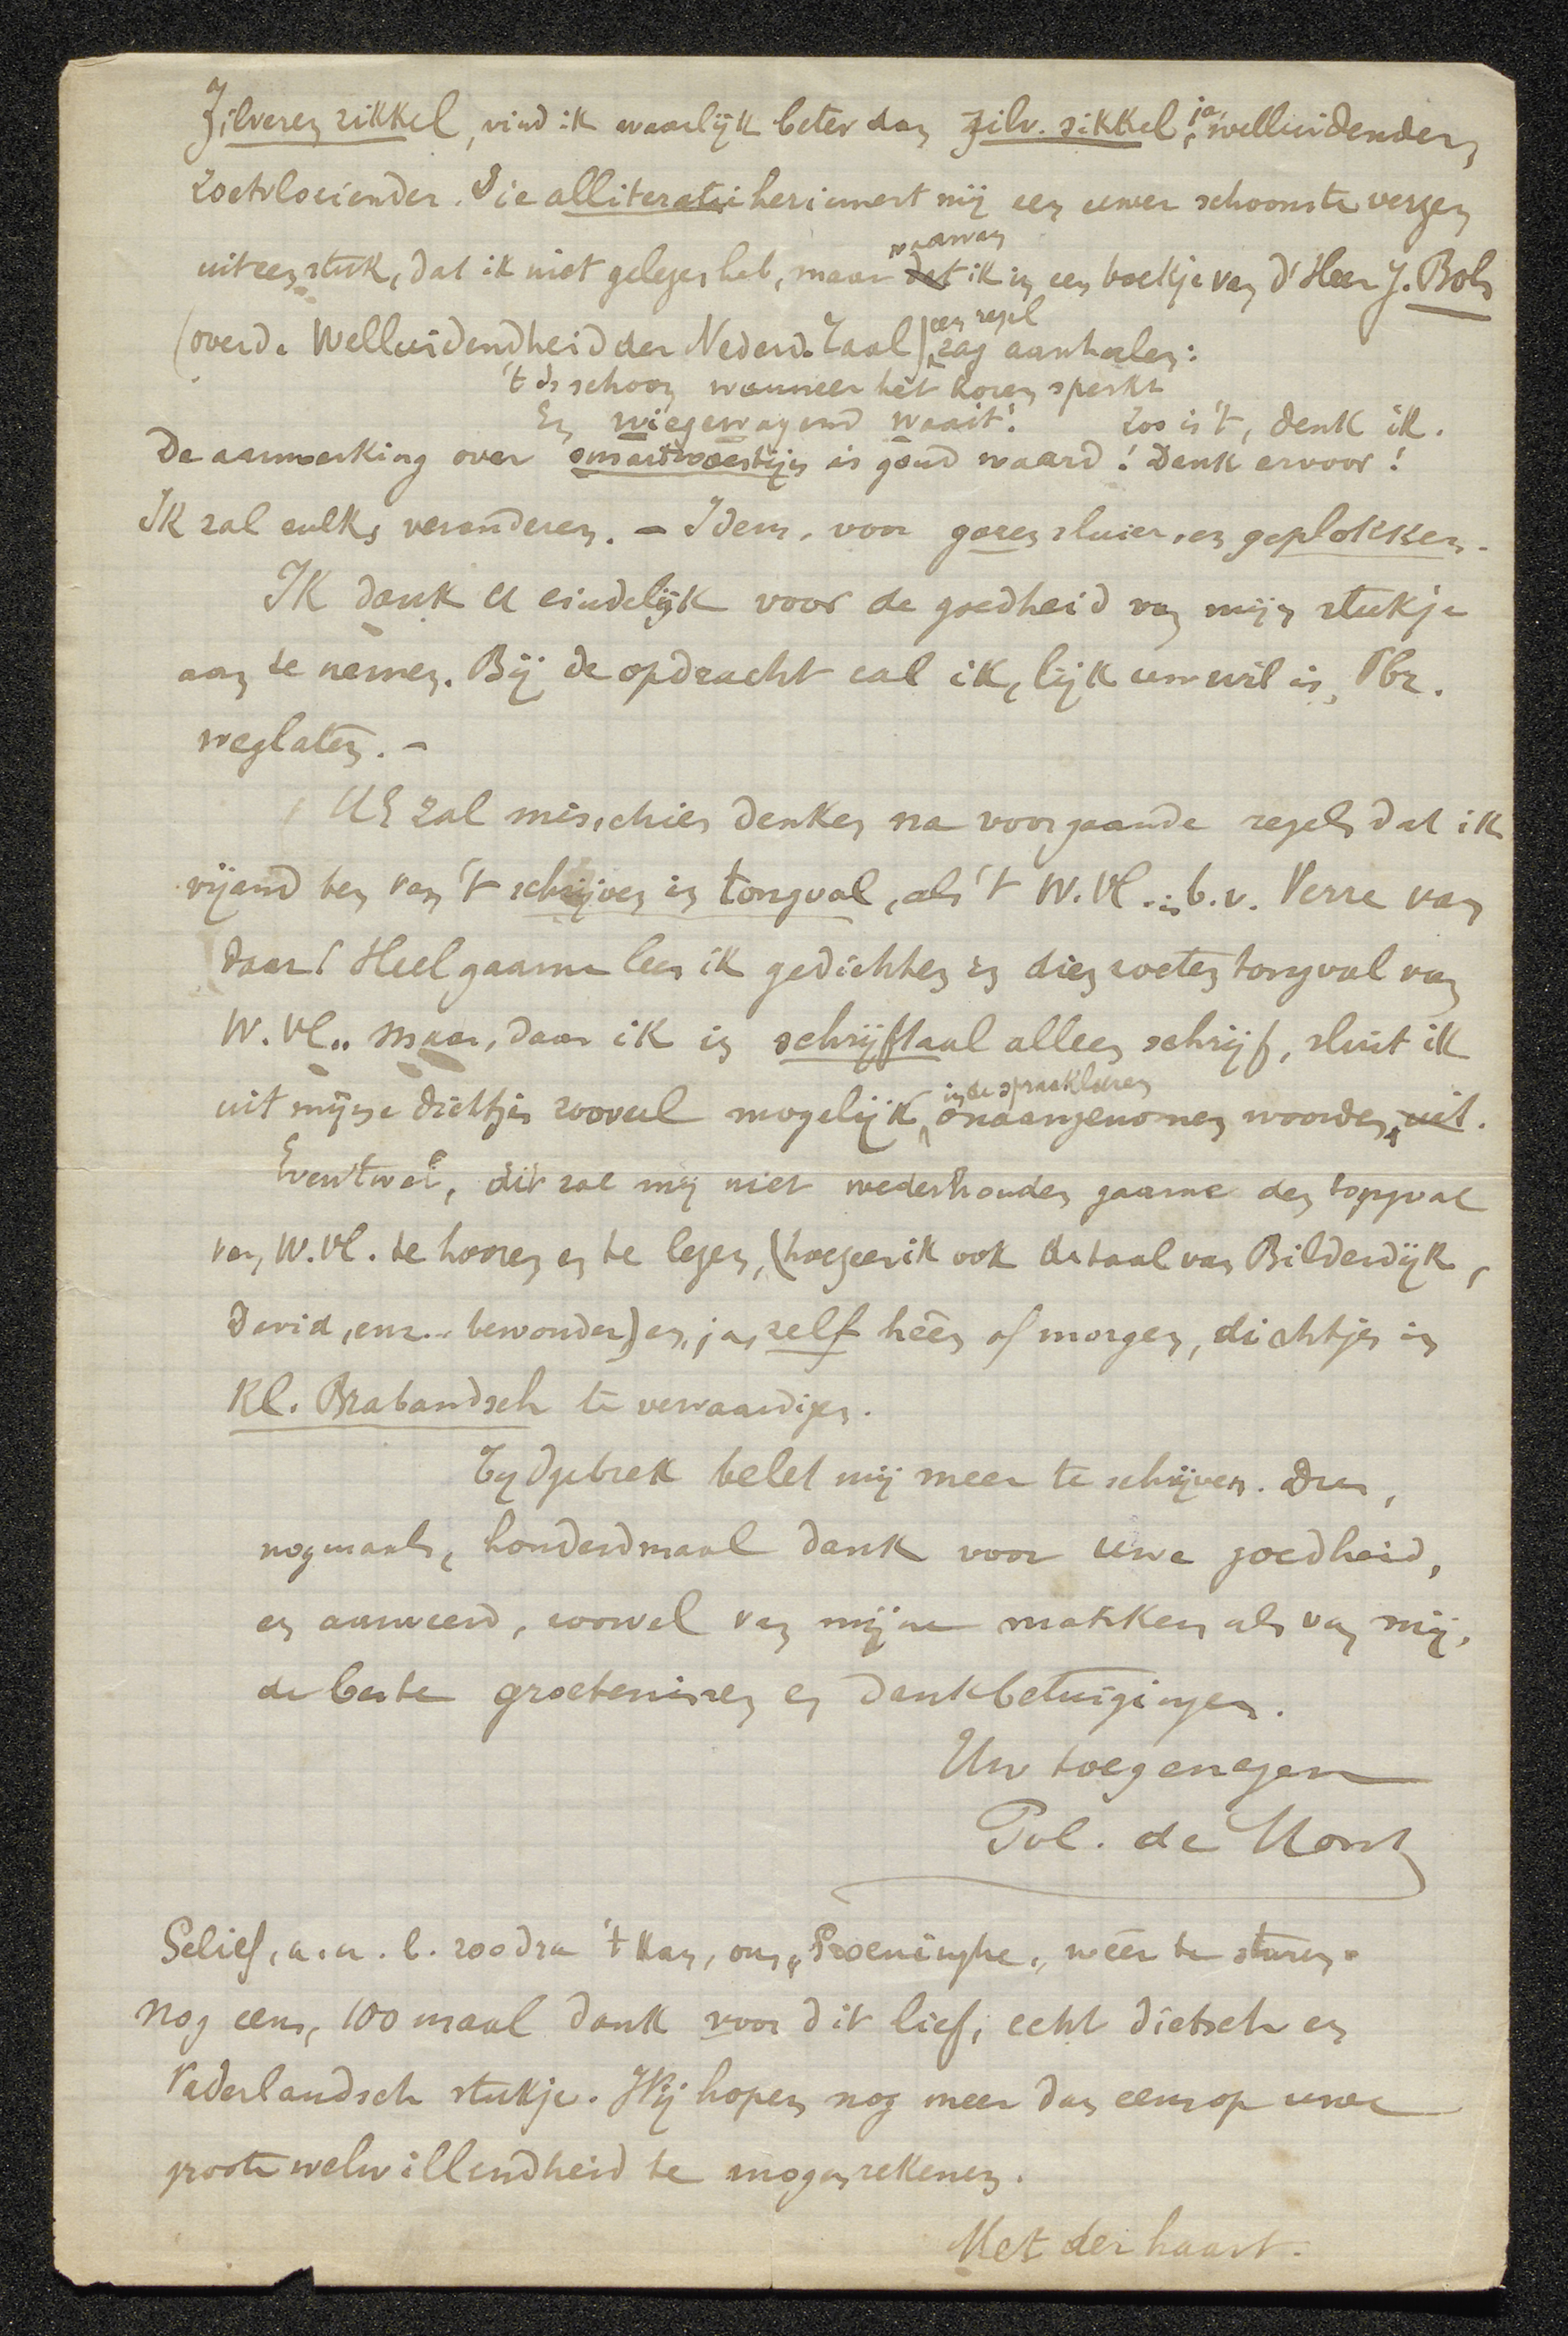 Zilveren zikkel, vind ik waarlijk beter dan zilv. sikkel, ja, welluidender,
zoetvloeiender. Die alliteratie herinnert mij een uwer schoonste verzen
uit een stuk, dat ik niet gelezen heb, maar waarvan ik in een boekje van d'Heer J. Bols
(over de Welluidendheid der Nederd. Taal) een regel zag aanhalen:
't Is schoon wanneer het koren
En wiegewagend waait! Zoo is 't, denk ik.
De aanmerking over is goud waard! Dank ervoor!
Ik zal zulks veranderen. – Idem, voor gazen sluier, en geplokken.
Ik dank U eindelijk voor de goedheid van mijn stukje
aan te nemen. Bij de opdracht zal ik, lijk uw wil is, Pbr.
weglaten. –
UE zal misschien denken na voorgaande regels dat ik
vijand ben van 't schrijven in tongval, als 't W. Vl. is b.v. Verre van
daar! Heel gaarne lees ik gedichten in dien zoeten tongval van
W. Vl.. Maar, daar ik in schrijftaal alleen schrijf, sluit ik
uit mijne dichtjes zooveel mogelijk in de spraakleeren onaangenomen woorden uit.
Even'twel, dit zal mij niet wederhouden gaarne den tongval
van W. Vl. te hooren en te lezen, (hoezeer ik ook de taal van Bilderdijk,
David, enz... bewonder) en, ja, zelf heên of morgen, dichtjes in
Kl. Brabandsch te vervaardigen.
Tijdgebrek belet mij meer te schrijven. Dus,
nogmaals, honderdmaal dank voor uwe goedheid,
en aanveerd, zoowel van mijne makkers als van mij,
de beste groetenissen en dankbetuigingen.
Uw toegenegen
Pol. de Mont
Gelief, a.u.b. zoodra 't kan, ons "Groeninghe" wêer te sturen.
Nog eens, 100 maal dank voor dit lief, echt dietsch en
vaderlandsch stukje. Wij hopen nog meer dan eens op uwe
groote welwillendheid te mogen rekenen.
Met der haast.